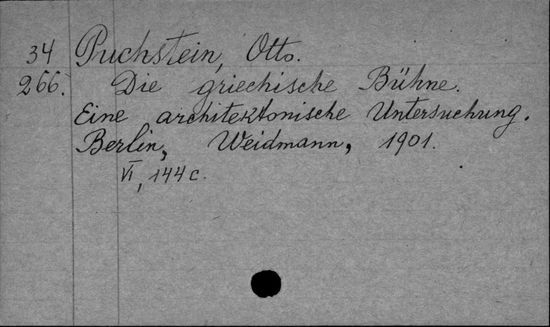 34 Puchstein, Otto.
266. Die griechische Bühne.
Eine architektonische Untersuchung.
Berlin, Weidmann, 1901.
VI, 144 c.